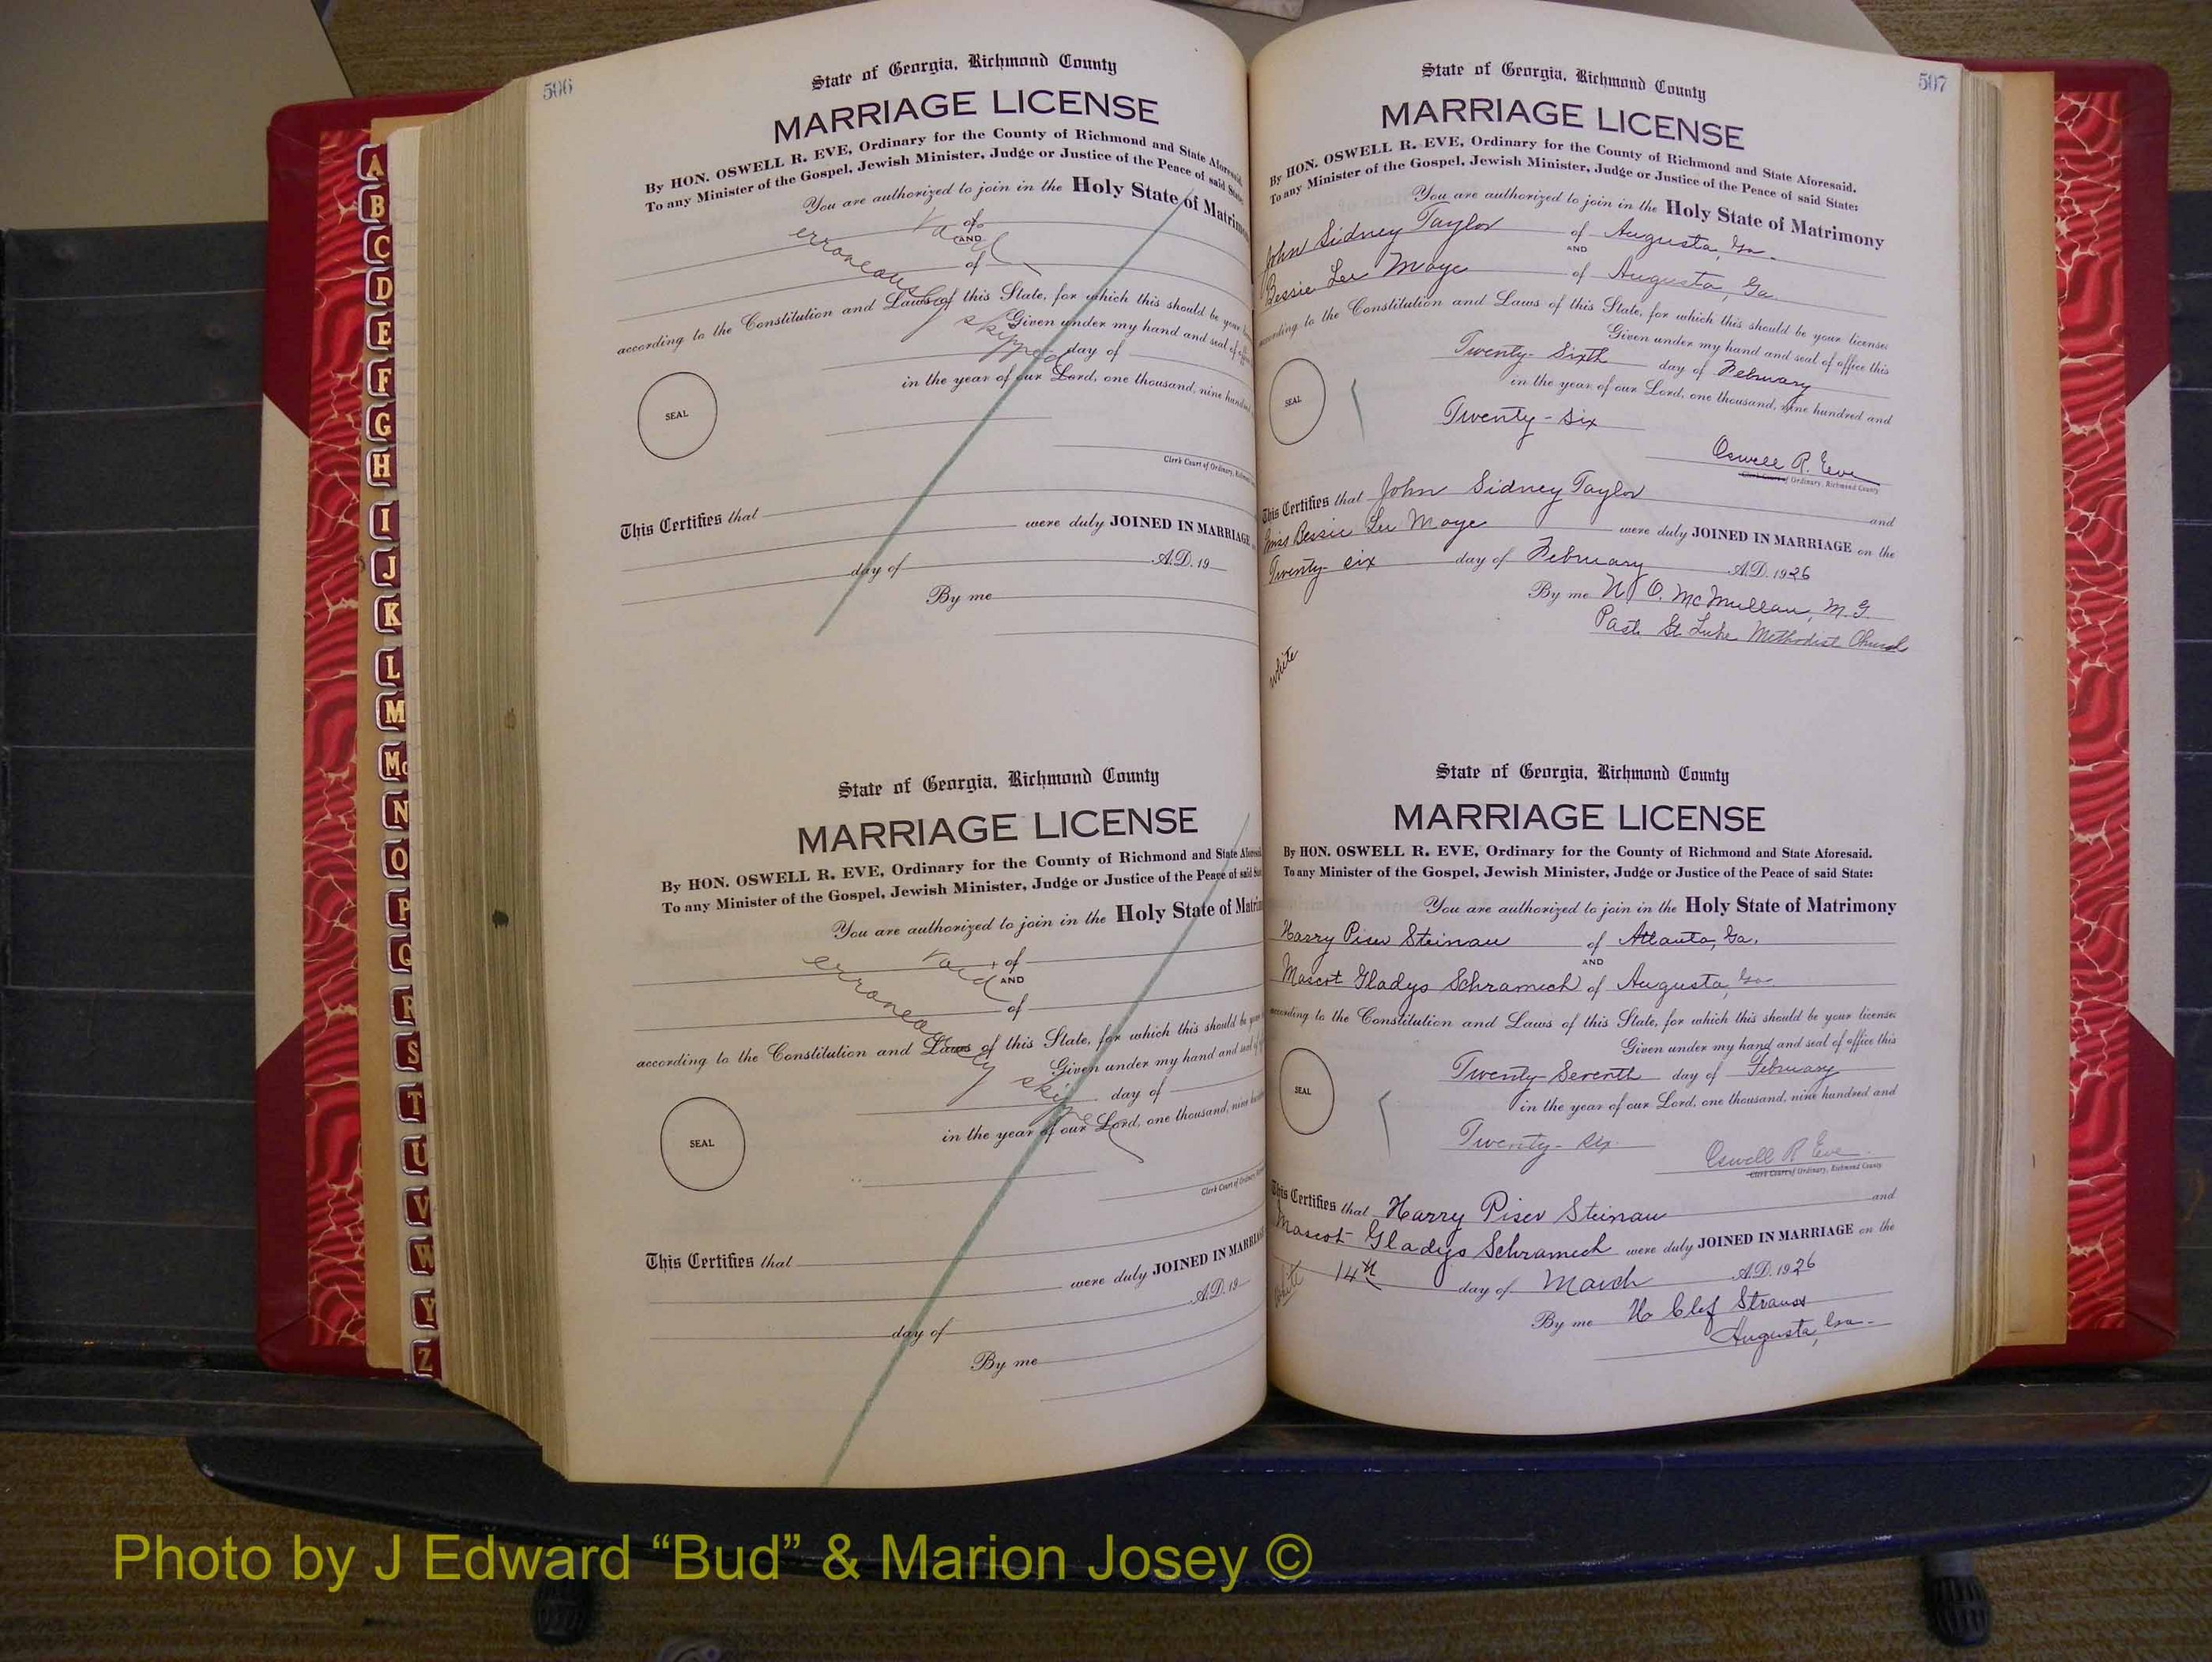 A
B
C
D
E
F
G
H
I
J
K
L
M
Mc
N
O
P
Q
R
S
T
U
V
W
Y
Z
506
State of Georgia, Richmond County
MARRIAGE LICENSE
By HON. OSWELL R. EVE, Ordinary for the County of Richmond and State Aforesaid.
To any Minister of the Gospel, Jewish Minister, Judge or Justice of the Peace of said State
You are authorized to join in the Holy State of Matrimon
Void of
AND
erroneously of
according to the Constitution and Laws of this State, for which this should be your
skipped Given under my hand and seal of
day of
in the year of our Lord, one thousand, nine hundred
SEAL
Clerk Court of Ordinary,
This Certifies that
were duly JOINED IN MARRIAGE
day of A.D. 19
By me
State of Georgia, Richmond County
MARRIAGE LICENSE
By HON. OSWELL R. EVE, Ordinary for the County of Richmond and State
To any Minister of the Gospel, Jewish Minister, Judge or Justice of the Peace of said
You are authorized to join in the Holy State of Matrim
Void of
AND
erroneously of
according to the Constitution and Laws of this State, for which this should be your
skipped Given under my hand and seal of
day of
in the year of our Lord, one thousand, nine
SEAL
Clerk Court of Ordinary
This Certifies that
were duly JOINED IN MARRIAG
day of A.D. 19
By me
507
State of Georgia, Richmond County
MARRIAGE LICENSE
By HON. OSWELL R. EVE, Ordinary for the County of Richmond and State Aforesaid.
To any Minister of the Gospel, Jewish Minister, Judge or Justice of the Peace of said State:
You are authorized to join in the Holy State of Matrimony
John Sidney Taylor of Augusta, Ga.
AND
Bessie Lee Moye of Augusta, Ga.
according to the Constitution and Laws of this State, for which this should be your license:
Given under my hand and seal of office this
Twenty-Sixth day of February
in the year of our Lord, one thousand, nine hundred and
Twenty-Six
SEAL
Oswell R. Eve
Clerk Court of Ordinary, Richmond County
This Certifies that John Sidney Taylor and
Miss Bessie Lee Moye were duly JOINED IN MARRIAGE on the
Twenty six day of February A.D. 1926
By me O. McMullan, M.G.
Past. St. Luke Methodist Church
white
State of Georgia, Richmond County
MARRIAGE LICENSE
By HON. OSWELL R. EVE, Ordinary for the County of Richmond and State Aforesaid.
To any Minister of the Gospel, Jewish Minister, Judge or Justice of the Peace of said State:
You are authorized to join in the Holy State of Matrimony
Harry Piser Steinau of Atlanta, Ga.
AND
Mascot Gladys Schramech of Augusta, Ga
according to the Constitution and Laws of this State, for which this should be your license:
Given under my hand and seal of office this
Twenty-Seventh day of February
in the year of our Lord, one thousand, nine hundred and
Twenty-Six
SEAL
Oswell R Eve
Clerk Court of Ordinary, Richmond County
This Certifies that Harry Piser Steinau and
Mascot Gladys Schramech were duly JOINED IN MARRIAGE on the
white 14th day of March A.D. 1926
By me H Clef Strauss
Augusta, Ga.
Photo by J Edward “Bud” & Marion Josey ©